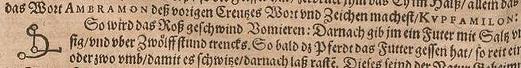 das Wort AMBRAMON deß vorigen Creutzes Wort vnd Zeichen machest/KVPFAMILON:
So wird das Roß geschwind Vomieren: Darnach gib im ein Futer mit Saltz
sig/vnd vber Zwölff stund trencks. So bald dz Pferdt das Futter gessen hat/ so reit
oder zwo vmb/damit es schwitze/darnach laß rasten. Dieses seind der